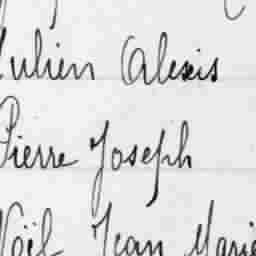 Julien Alexis
Pierre Joseph
Noël Jean Marie